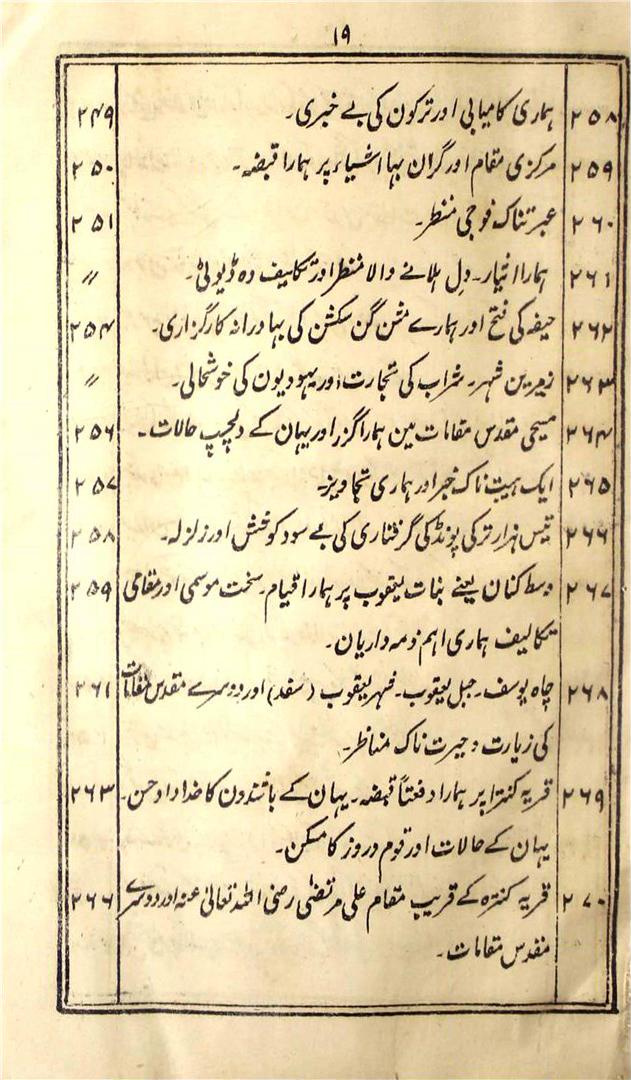 ۱۹
۲۵۸ ہماری کامیابی اور ترکون کی بے خبری۔ ۲۴۹
۲۵۹ مرکزی مقام اور گران بہا اشیاء پر ہمارا قبضہ۔ ۲۵۰
۲۶۰ عبرتناک فوجی منظر۔ ۲۵۱
۲۶۱ ہمارا انیار۔ دل ہلانے والا منظر اور تکلیف دہ ڈیوٹی۔ 〃
۲۶۲ حیفہ کی فتح اور ہمارے مشن گن سکشن کی بہادرانہ کارگزاری۔ ۲۵۴
۲۶۳ زمرین شہر۔ شراب کی تجارت اور یہودیون کی خوشحالی۔ 〃
۲۶۴ مسیحی مقدس مقامات مین ہمارا گزر اور یہان کے دلچسپ حالات۔ ۲۵۶
۲۶۵ ایک ہیبت ناک خبر اور ہماری تجاویز۔ ۲۵۷
۲۶۶ تیس ہزار ترکی پونڈ کی گرفتاری کی بے سود کوشش اور زلزلہ۔ ۲۵۸
۲۶۷ وسط کنان یعنے بنات یعقوب پر ہمارا قیام۔ سخت موسمی اور مقامی ۲۵۹
تکالیف ہماری اہم ذمہ داریان۔
۲۶۸ چاہ یوسف۔ جبل یعقوب۔ شہر یعقوب (سفد) اور دوسرے مقدس مقامات ۲۶۱
کی زیارت و حیرت ناک مناظر۔
۲۶۹ قریہ کنترا پر ہمارا دفعتاً قبضہ۔ یہان کے باشندون کا خداداد حسن۔ ۲۶۳
یہان کے حالات اور قوم دروز کا مسکن۔
۲۷۰ قریہ کنترہ کے قریب مقام علی مرتضیٰ رضی اللہ تعالیٰ عنہ اور دوسرے ۲۶۶
مقدس مقامات۔